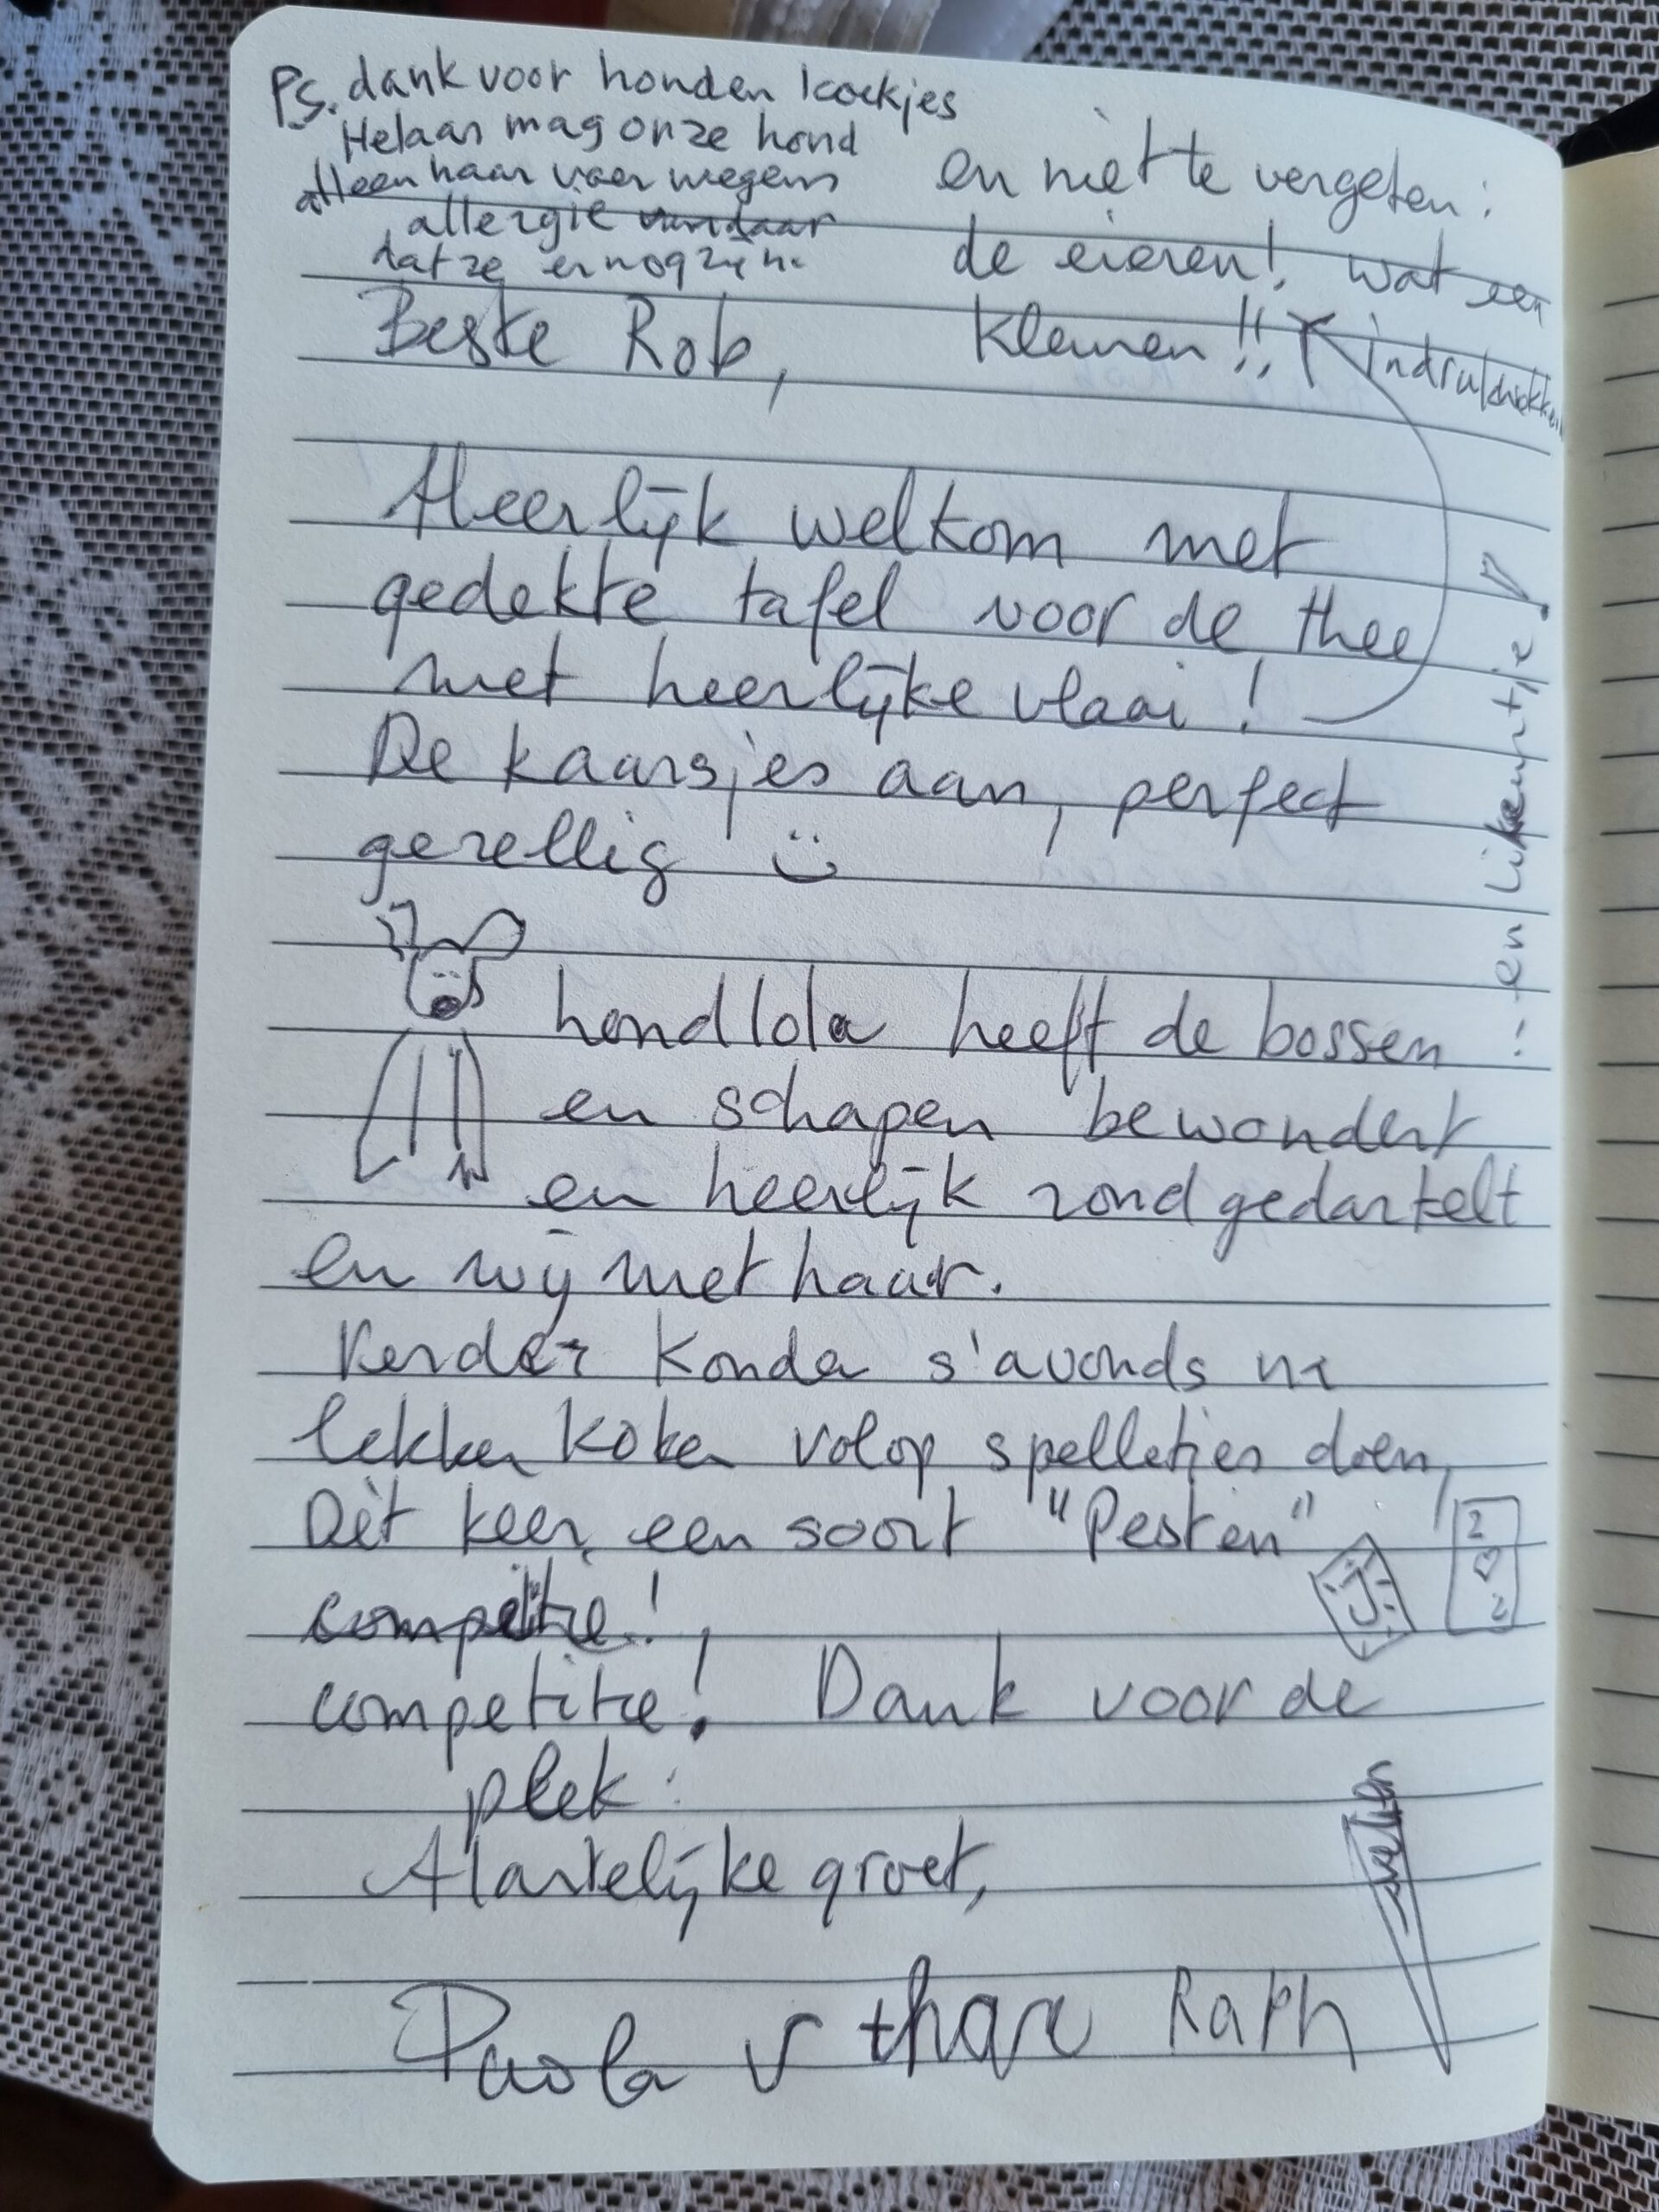 P.S. dank voor honden koekjes
Helaas mag onze hond
alleen haar voer wegens
allergie vandaar
dat ze er nog zijn.
en niet te vergeten:
de eieren! wat een
kleuren!!
indrukwekkend
Beste Rob,
Heerlijk welkom met
gedekte tafel voor de thee
met heerlijke vlaai!
De kaarsjes aan, perfect
gezellig
en likeurtje!
hond lola heeft de bossen
en schapen bewondert
en heerlijk rond gedartelt
en wij met haar.
Verder konden s'avonds na
lekker koken volop spelletjes doen,
Dit keer een soort "Pesten"
competitie!
J
2
2
competitie! Dank voor de
plek.
Hartelijke groet,
Paola
Raph